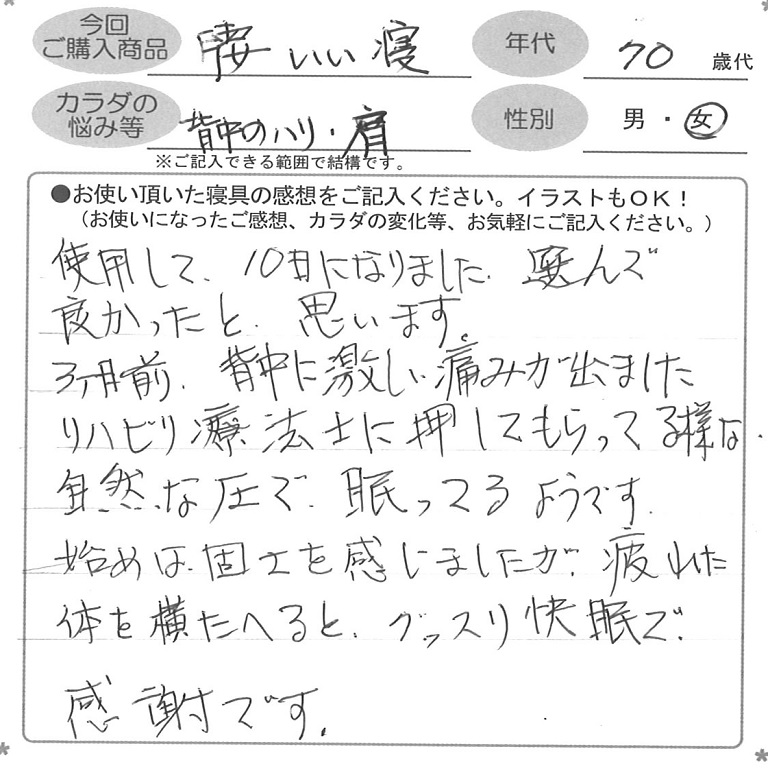 今回
ご購入商品
凄いいい寝
年代
70 歳代
カラダの
悩み等
背中のハリ・肩
性別
男・女
※ご記入できる範囲で結構です。
●お使い頂いた寝具の感想をご記入ください。イラストもOK！
（お使いになったご感想、カラダの変化等、お気軽にご記入ください。）
使用して、10日になりました、選んで
良かったと、思います。
3ヶ月前、背中に激しい痛みが出ました
リハビリ療法士に押してもらってる様な、
自然な圧で、眠ってるようです。
始めは固さを感じましたが、疲れた
体を横たへると、グッスリ快眠で、
感謝です。